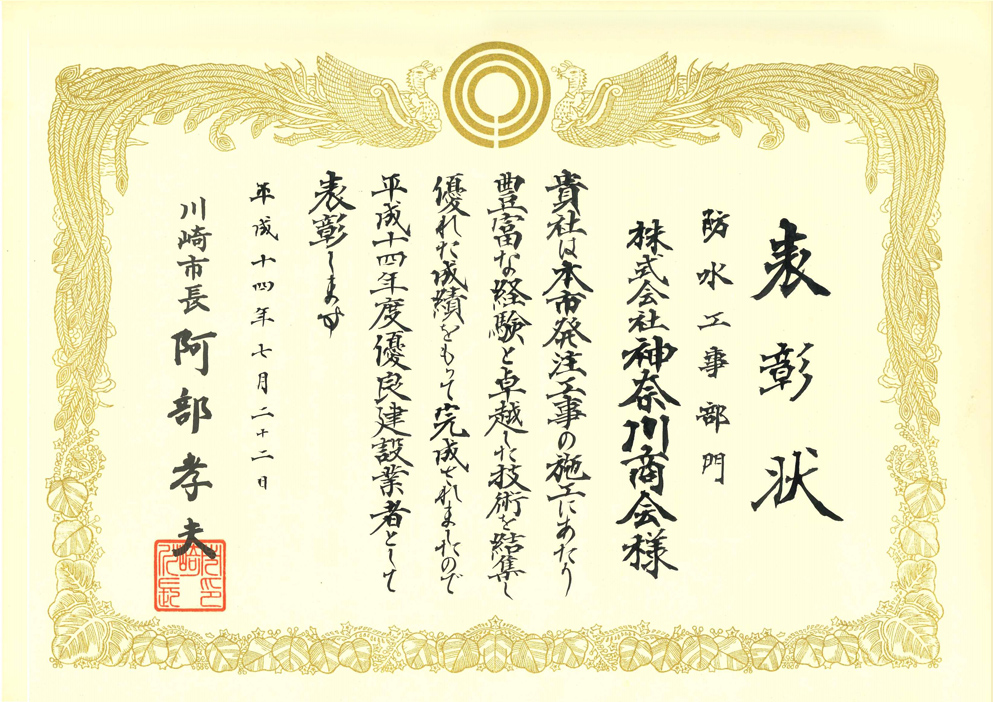 表彰状
防水工事部門
株式会社神奈川商会様
貴社は本市発注工事の施工にあたり
豊富な経験と卓越した技術を結集し
優れた成績をもって完成されましたので
平成十四年度優良建設業者として
表彰します
平成十四年七月二十二日
川崎市長 阿部孝夫